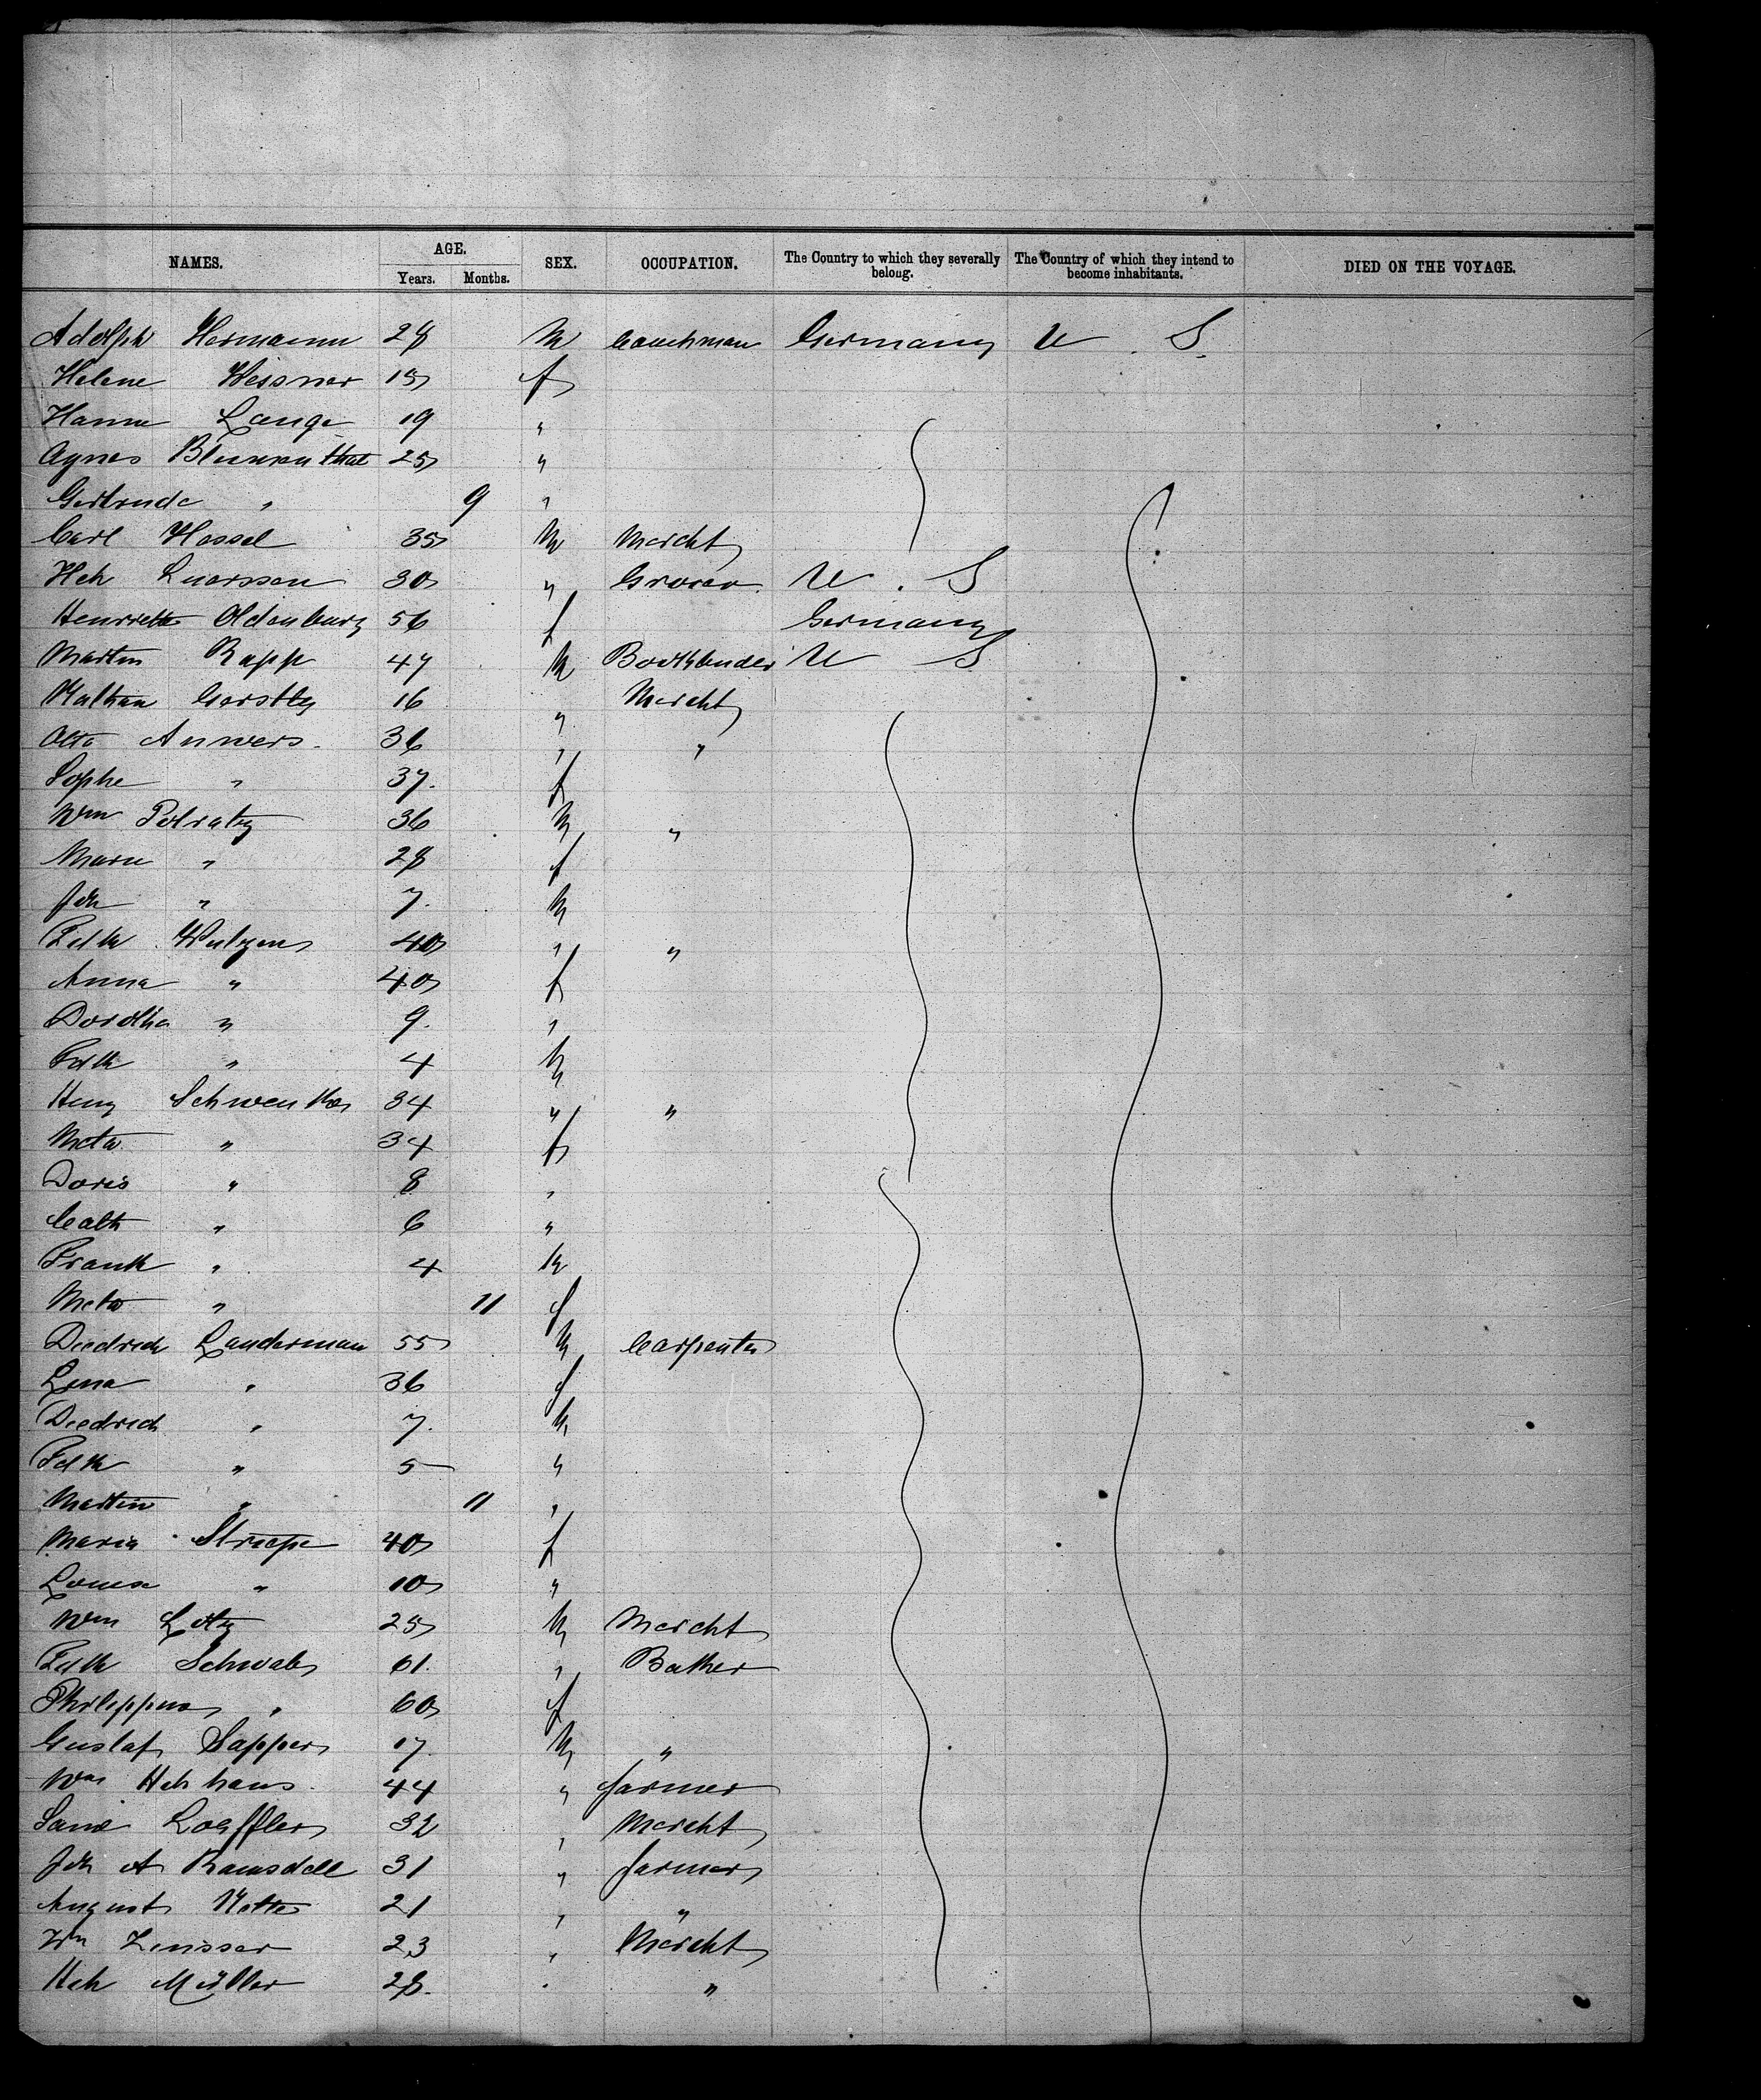 NAMES. AGE. Years. Months. SEX. OCCUPATION. The Country to which they severally belong. The Country of which they intend to become inhabitants. DIED ON THE VOYAGE.
Adolph Hermann 28 M Coachman Germany U. S.
Helene Wessner 15 f
Hanna Lange 19 "
Agnes Blumenthal 25 "
Gertrude " 9 "
Carl Hassel 35 M Mercht
Hch Luerssen 30 " Grocer U. S
Henriette Oldenburg 56 f Germany
Martin Rapp 47 M Bookbinder U S
Nathan Gerstley 16 " Mercht
Otto Anwers 36 " "
Sophe " 37. f
Wm Polratzy 36 M "
Marie " 28 f
Joh " 7. M
Fdk Wulzen 40 " "
Anna " 40 f
Dorotha " 9. "
Fdk " 4 M
Heny Schwenke 34 " "
Meta " 34 f
Doris " 8 "
Cath " 6 "
Frank " 4 M
Meta " 11 f
Diedrich Landerman 55 M Carpenter
Lina " 36 f
Diedrich " 7. M
Fdk " 5 "
Martin " 11 "
Maria Struepe 40 f
Louise " 10 "
Wm Lotz 25 M Mercht
Fdk Schwab 61. " Baker
Philippina " 60 f
Gustaf Sapper 17 M "
Wm Hchhaus 44 " farmer
Saml Loeffler 32 " Mercht
Joh A Ramsdell 31 " farmer
August Netter 21 " "
Wm Zinsser 23 " Mercht
Hch Müller 28. " "